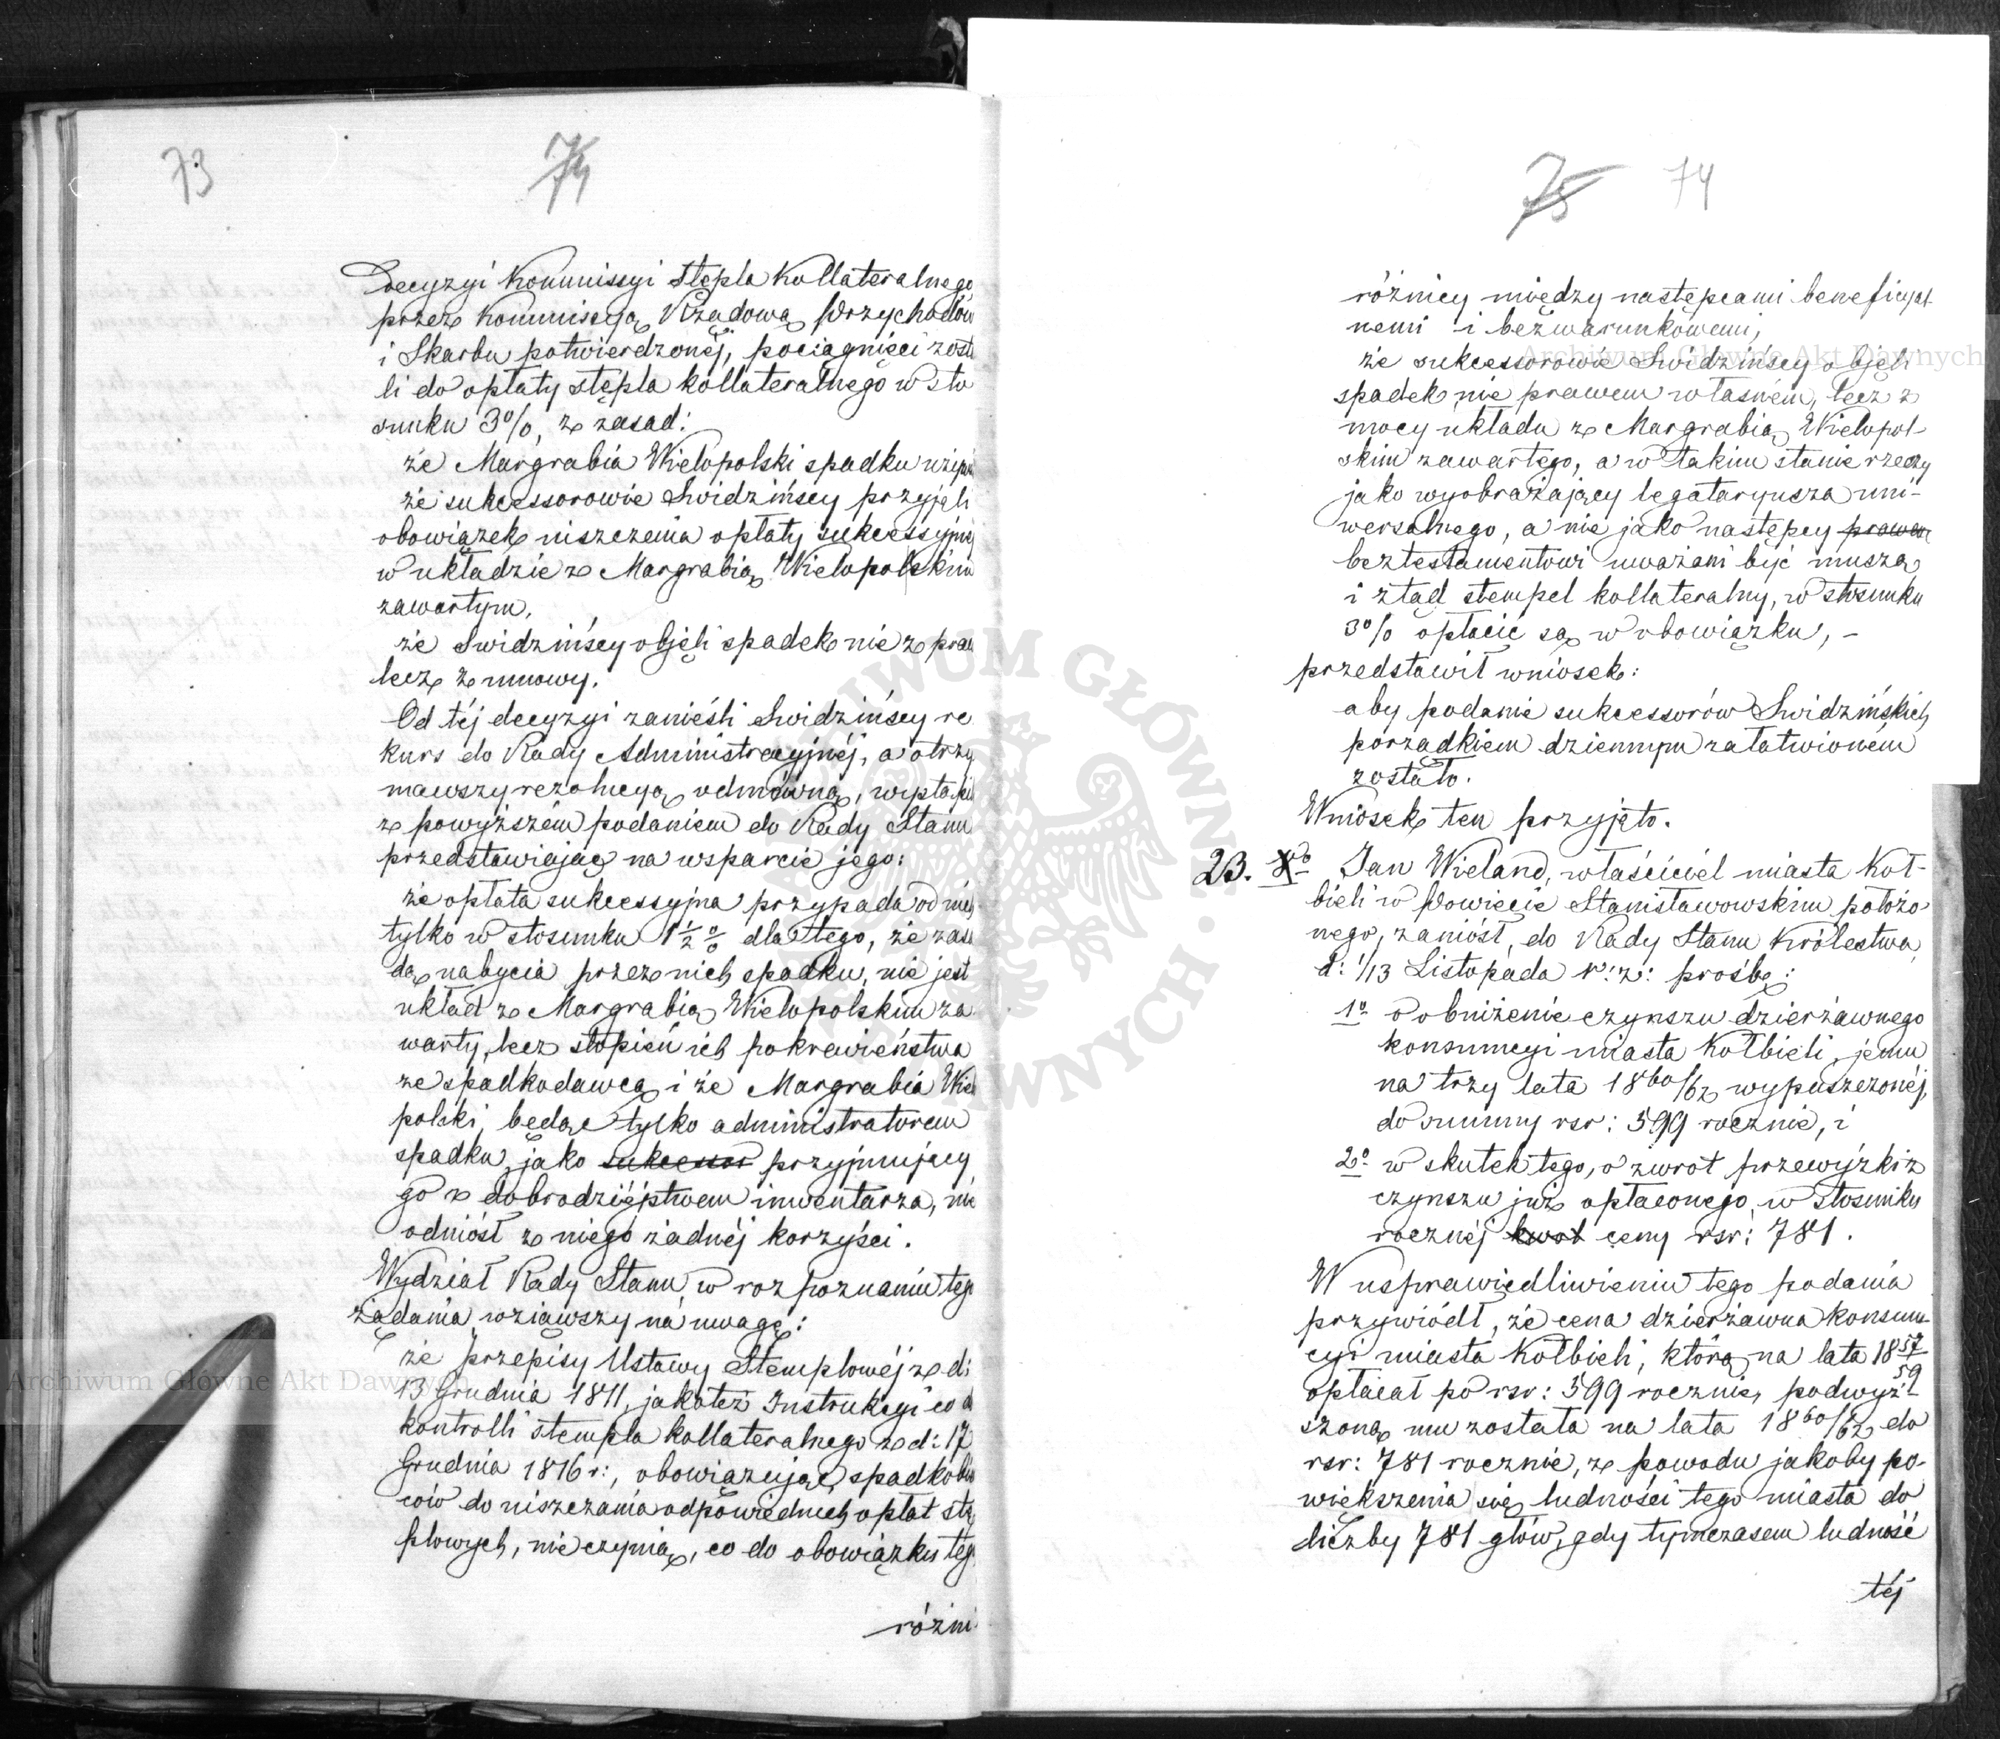 73
74
Decyzyi Kommissyi Stępla Kollateralnego
przez Kommissyą Rządową Przychodów
i Skarbu potwierdzonéj, pociągnięci zosta
li do opłaty stępla kollateralnego w sto
sunku 3%, z zasad:
że Margrabia Wielopolski spadku
że sukcessorowie Swidzińscy przyjęli
obowiązek uiszczenia opłaty sukcessyjnéj
w układzie z Margrabią Wielopolskim
zawartym,
że Swidzińscy objęli spadek nie z praw
lecz z umowy.
Od téj decyzyi zanieśli Swidzińscy re
kurs do Rady Administracyjnéj, a otrzy
mawszy rezolucyą odmówną, wystąpili
z powyższém podaniem do Rady Stanu
przedstawiając na wsparcie jego:
że opłata sukcessyjna przypada od nich
tylko w stosunku 1 1/2 % dla tego, że zasa
dą nabycia przez nich spadku, nie jest
układ z Margrabią Wielopolskim za
warty, lecz stopień ich pokrewieństwa
ze spadkodawcą i że Margrabia Wielo
polski, będąc tylko administratorem
spadku, jako sukcessor przyjmujący
go z dobrodziejstwem inwentarza, nie
odniósł z niego żadnéj korzyści.
Wydział Rady Stanu, w rozpoznaniu tego
żądania wziąwszy na uwagę:
że przepisy Ustawy Stemplowéj z d:
13 Grudnia 1811, jakoteż Instrukcyi co do
kontrolli stempla kollateralnego z d: 17
Grudnia 1816 r:, obowiązując spadkobier
ców do uiszczania odpowiednich opłat stę
plowych, nie czynią, co do obowiązku tego
różni
75 74
różnicy między następcami beneficyal
nemi i bezwarunkowemi,
że sukcessorowie Swidzińscy objęli
spadek nie prawem własném, lecz z
mocy układu z Margrabią Wielopol-
skim zawartego, a w takim stanie rzeczy
jako wyobrażający legataryusza uni-
wersalnego, a nie jako następcy prawem
beztestamentowi uważani być muszą
i ztąd stempel kollateralny, w stosunku
3% opłacić są w obowiązku, -
przedstawił wniosek:
aby podanie sukcessorów Swidzińskich
porządkiem dziennym załatwioném
zostało.
Wniosek ten przyjęto.
23. Jan Wieland, właściciel miasta Koł-
bieli w Powiecie Stanisławowskim położo-
nego, zaniósł, do Rady Stanu Królestwa,
d: 1/13 Listopada r: z: prośbę:
1o o obniżenie czynszu dzierżawnego
konsumcyi miasta Kołbieli, jemu
na trzy lata 1860/62 wypuszczonéj,
do summy rsr: 599 rocznie, i
2o w skutek tego, o zwrot przewyżki z
czynszu już opłaconego, w stosunku
rocznéj kwot ceny rsr: 781.
W usprawiedliwieniu tego podania
przywiódł, że cena dzierżawna konsum-
cyi miasta Kołbieli, którą na lata 1857/59
opłacał po rsr: 599 rocznie, podwyż-
szoną mu została na lata 1860/62 do
rsr: 781 rocznie, z powodu jakoby po-
większenia się ludności tego miasta do
liczby 781 głów, gdy tymczasem ludność
téj
Archiwum Główne Akt Dawnych
Archiwum Główne Akt Dawnych
ARCHIWUM GŁÓWNE AKT DAWNYCH